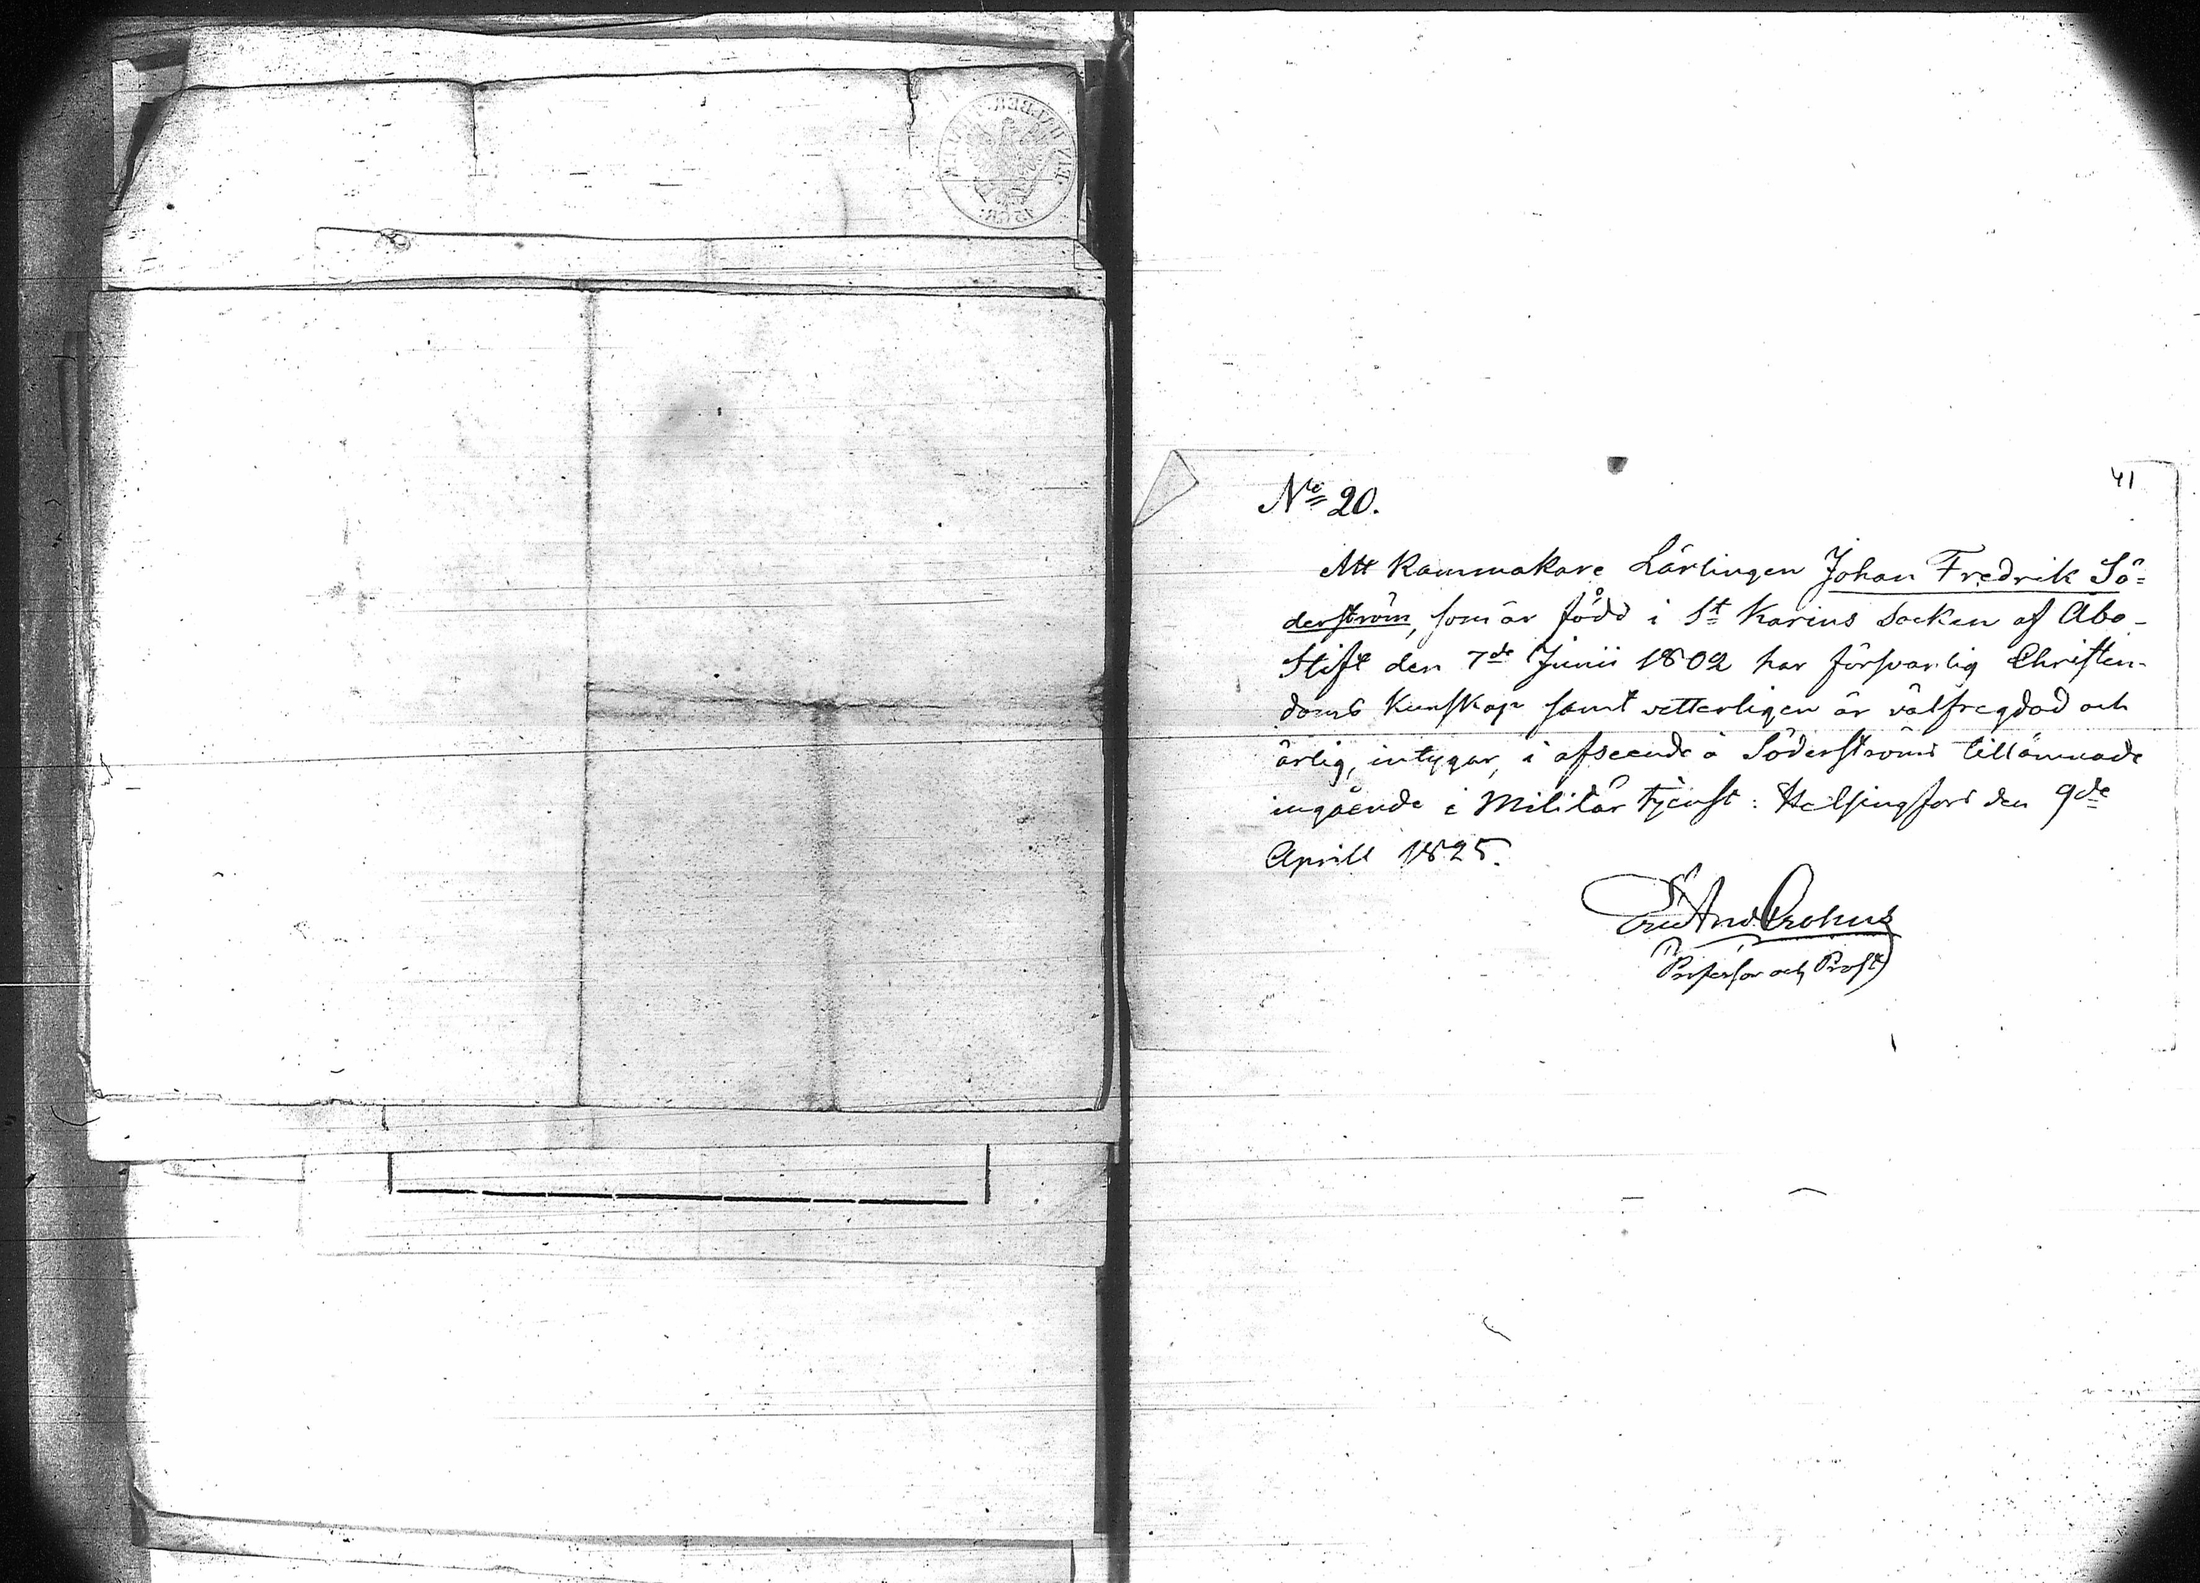 41
No 20.
Att Kammakare Lärlingen Johan Fredrik Sö=
derström, som är född i St Karins Socken af Åbo
Stift den 7de Junii 1802 har försvarlig Christen-
doms Kunskap samt vetterligen är välfregdad och
ärlig, intygar, i afseende å Söderströms tillämnade
ingående i Militär tjenst: Helsingfors den 9de
Aprill 1825.
Professor och Prost